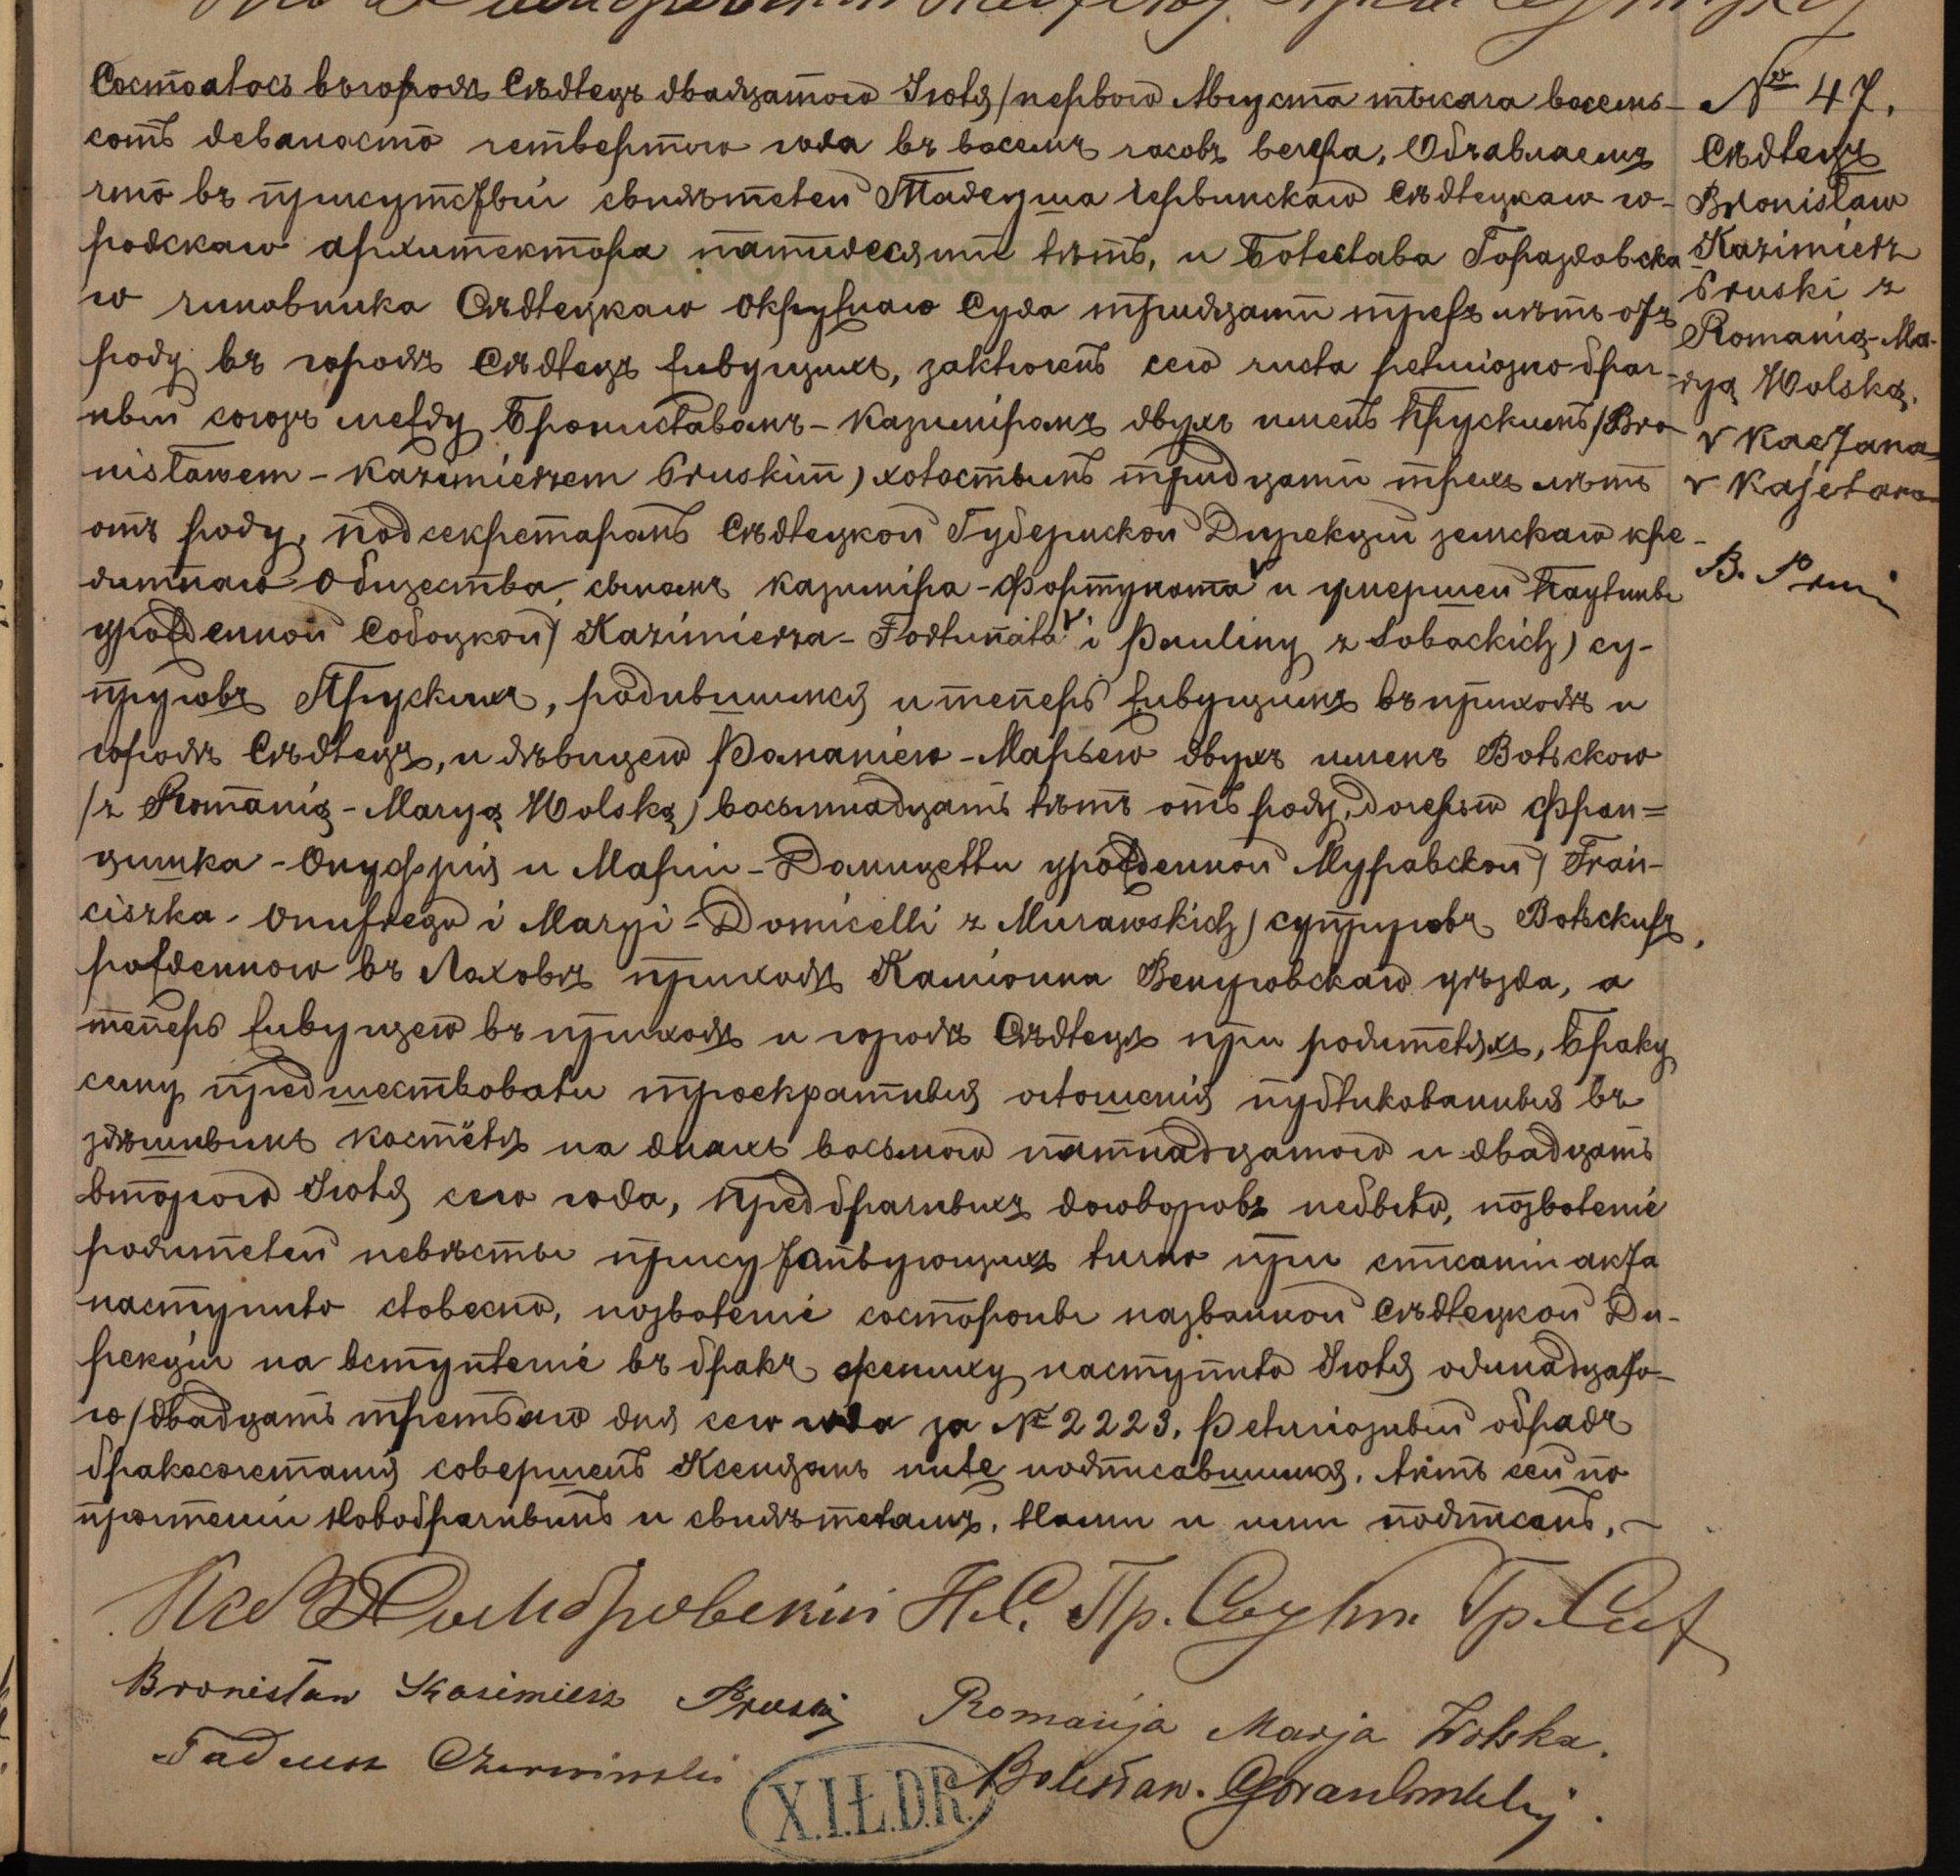 Состоялось въ городѣ Сѣдлецъ двайцатого Іюля/перваго Августа тысяча восемь-
сотъ девяносто четвертого года въ восемъ часовъ вечера. Объавляемъ
что въ присутствіи свидѣтелей Тадеуша Червинскаго Сѣдлецкаго го-
родскаго архитектора пятидесяти лѣтъ, и Болеслава Гораздовска
го чиновника Сѣдлецкаго Окружнаго Суда тридцати трехъ лѣтъ отъ
роду въ городѣ Сѣдлецъ живущихъ, заключенъ сего числа религіозно брач-
ный союзъ между Брониславомъ-Казиміромъ двухъ именъ Прускимъ/Bro
nisławem-Kazimierzem Pruskim) холостымъ тридцати трехъ лѣтъ
отъ роду, подсекретаремъ Сѣдлецкой Губернской Дирекціи земскаго кре-
дитнаго Общества, сыномъ Казиміра-Фортуната ѵ и умершей Паулины
урожденной Собоцкой/Kazimierza-Fortunata ѵ i Pauliny z Sobockich) су-
пруговъ Прускихъ, родившимся и теперь живущимъ въ приходѣ и
городѣ Сѣдлецъ, и дѣвицею Романіею-Марьею двухъ именъ Вольскою
/z Romanią-Maryą Wolską) восьмнадцать лѣтъ отъ роду, дочерью Фран=
цишка-Онуфрія и Маріи-Домицелли урожденной Муравской/Fran-
ciszka-Onufrego i Maryi-Domicelli z Murawskich) супруговъ Вольскихъ,
рожденною въ Ляховѣ приходѣ Каміонна Венгровскаго уѣзда, а
теперь живущею въ приходѣ и городѣ Сѣдлецъ при родителяхъ, Браку
сему предшествовали троекратныя оглошенія публикованныя въ
здѣшнымъ костёлѣ на дняхъ восьмого пятнадцатого и двадцать
второго Іюля сего года, Предбрачныхъ договоровъ небыло, позволеніе
родителей невѣсты присутствующихъ лично при списаніи акта
наступило словесно, позволеніе состороны названной Сѣдлецкой Ди-
рекціи на вступленіе въ бракъ жениху наступило Іюля одинадцато-
го/двадцать третьяго дня сего года за № 2223. Религіозный обрядъ
бракосочетанія совершенъ Ксендзомъ ниже подписавшимся. Актъ сей по
прочтеніи Новобрачнымъ и свидѣтелямъ, Нами и ими подписанъ,
Кс Домбровскій Н.С. Пр. Сѣдл. Гр. Сост
Bronisław Kazimierz Pruski Romanija Marja Wolska.
Tadeusz Czerwiński Bolesław. Gorazdowski.
X.I.Ł.D.R.
№ 47.
Сѣдлецъ
Bronisław
Kazimierz
Pruski z
Romanią-Ma-
ryą Wolską.
ѵ Каетана
ѵ Kajetana